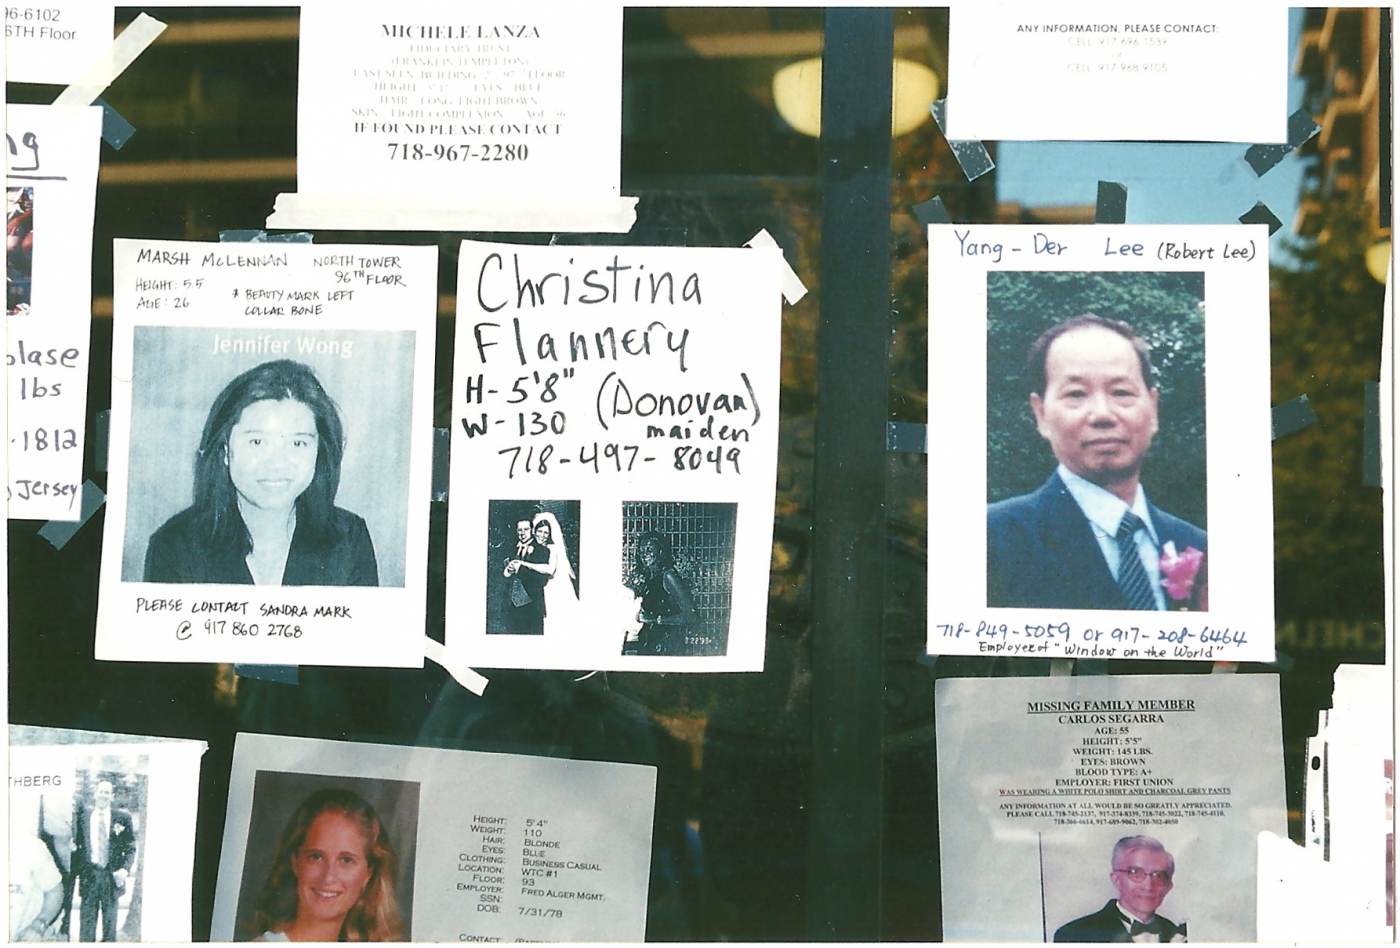 96-6102
6TH Floor
MICHELE LANZA
FIDUCIARY TRUST
(FRANKLIN TEMPLETON)
LAST SEEN: BUILDING 2 97TH FLOOR
HEIGHT: EYES: BLUE
HAIR: LONG LIGHT BROWN
SKIN: LIGHT COMPLEXION AGE: 36
IF FOUND PLEASE CONTACT
718-967-2280
ANY INFORMATION, PLEASE CONTACT:
CELL: 917 696 1539
or
CELL: 917-968 9105
ng
olase
lbs
-1812
Jersey
MARSH MCLENNAN NORTH TOWER
96TH FLOOR
HEIGHT: 5.5
AGE: 26
* BEAUTY MARK LEFT
COLLAR BONE
Jennifer Wong
PLEASE CONTACT SANDRA MARK
@ 917 860 2768
Christina
Flannery
H- 5'8" (Donovan)
W- 130 maiden
718-497-8049
Yang-Der Lee (Robert Lee)
718-849-5059 or 917-208-6464
Employee of "Window on the World"
THBERG
HEIGHT: 5'4"
WEIGHT: 110
HAIR: BLONDE
EYES: BLUE
CLOTHING: BUSINESS CASUAL
LOCATION: WTC #1
FLOOR: 93
EMPLOYER: FRED ALGER MGMT.
SSN:
DOB: 7/31/78
CONTACT:
MISSING FAMILY MEMBER
CARLOS SEGARRA
AGE: 55
HEIGHT: 5'5"
WEIGHT: 145 LBS.
EYES: BROWN
BLOOD TYPE: A+
EMPLOYER: FIRST UNION
WAS WEARING A WHITE POLO SHIRT AND CHARCOAL GREY PANTS
ANY INFORMATION AT ALL WOULD BE SO GREATLY APPRECIATED.
PLEASE CALL 718-745-2137, 917-374-8339, 718-745-3022, 718-745-4110,
718-366-6614, 917-689-9062, 718-302-4050